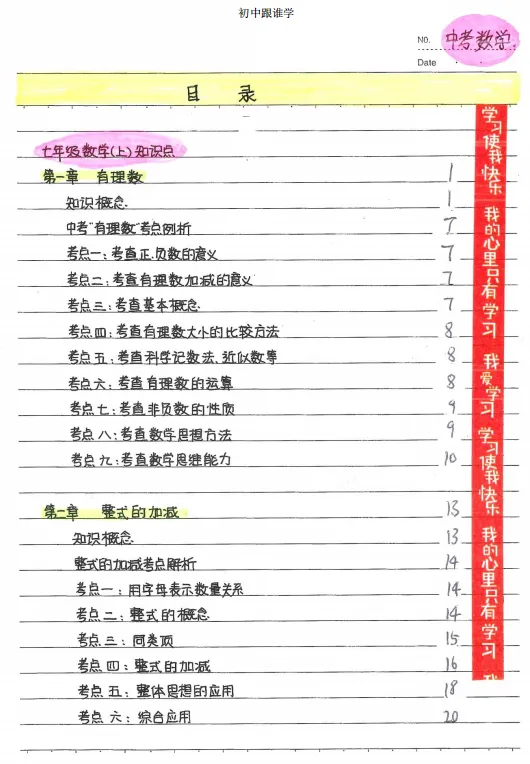 初中跟谁学
No. 中考数学
Date
目 录
七年级数学(上)知识点
第一章 有理数 1
知识概念 1
中考"有理数"考点例析 7
考点一:考查正、负数的意义 7
考点二:考查有理数加减的意义 7
考点三:考查基本概念 7
考点四:考查有理数大小的比较方法 8
考点五:考查科学记数法、近似数等 8
考点六:考查有理数的运算 8
考点七:考查非负数的性质 9
考点八:考查数学思想方法 9
考点九:考查数学思维能力 10
第二章 整式的加减 13
知识概念 13
整式的加减考点解析 14
考点一:用字母表示数量关系 14
考点二:整式的概念 14
考点三:同类项 15
考点四:整式的加减 16
考点五:整体思想的应用 18
考点六:综合应用 20
学习使我快乐 我的心里只有学习 我爱学习 学习使我快乐 我的心里只有学习 我